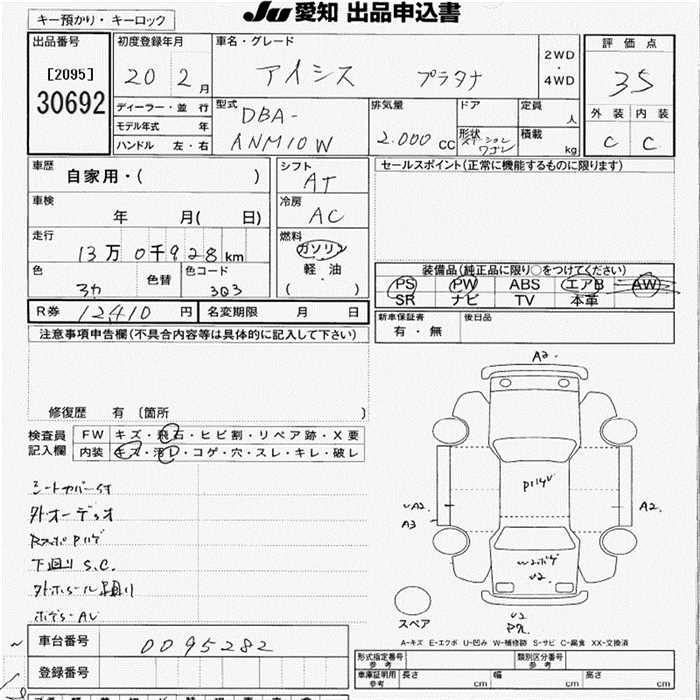 キー預かり・キーロック
JU 愛知 出品申込書
出品番号
[2095]
30692
初度登録年月
20 2月
ディーラー・並行
モデル年式 年
ハンドル 左・右
車名・グレード
アイシス プラタナ
2WD
・
4WD
評価点
3.5
外装 内装
C C
型式
DBA-
ANM10W
排気量
2.000 CC
ドア
形状
ステーション
ワゴン
定員
人
積載
kg
車歴
自家用・( )
車検
年 月( 日)
走行
13万0千928km
色
色替
色コード
3Q3
シフト
AT
冷房
AC
燃料
ガソリン
軽・油
( )
セールスポイント(正常に機能するものに限ります)
装備品(純正品に限り○をつけてください)
PS PW ABS エアB AW
SR ナビ TV 本革
R券 12410 円
名変期限 月 日
新車保証書
有・無
後日品
注意事項申告欄(不具合内容等は具体的に記入して下さい)
修復歴 有〔箇所 〕
検査員
記入欄
FW キズ・飛石・ヒビ割・リペア跡・X要
内装 キズ・汚レ・コゲ・穴・スレ・キレ・破レ
シートカバー付
外オーディオ
下廻りS.C.
A2.
A2.
A3
A2.
U2
U2
スペア
A-キズ E-エクボ U-凹み W-補修跡 S-サビ C-腐食 XX-交換済
車台番号
0095282
登録番号
形式指定番号
参考
類別区分番号
参考
車庫証明用
参考
長さ cm
幅 cm
高さ cm